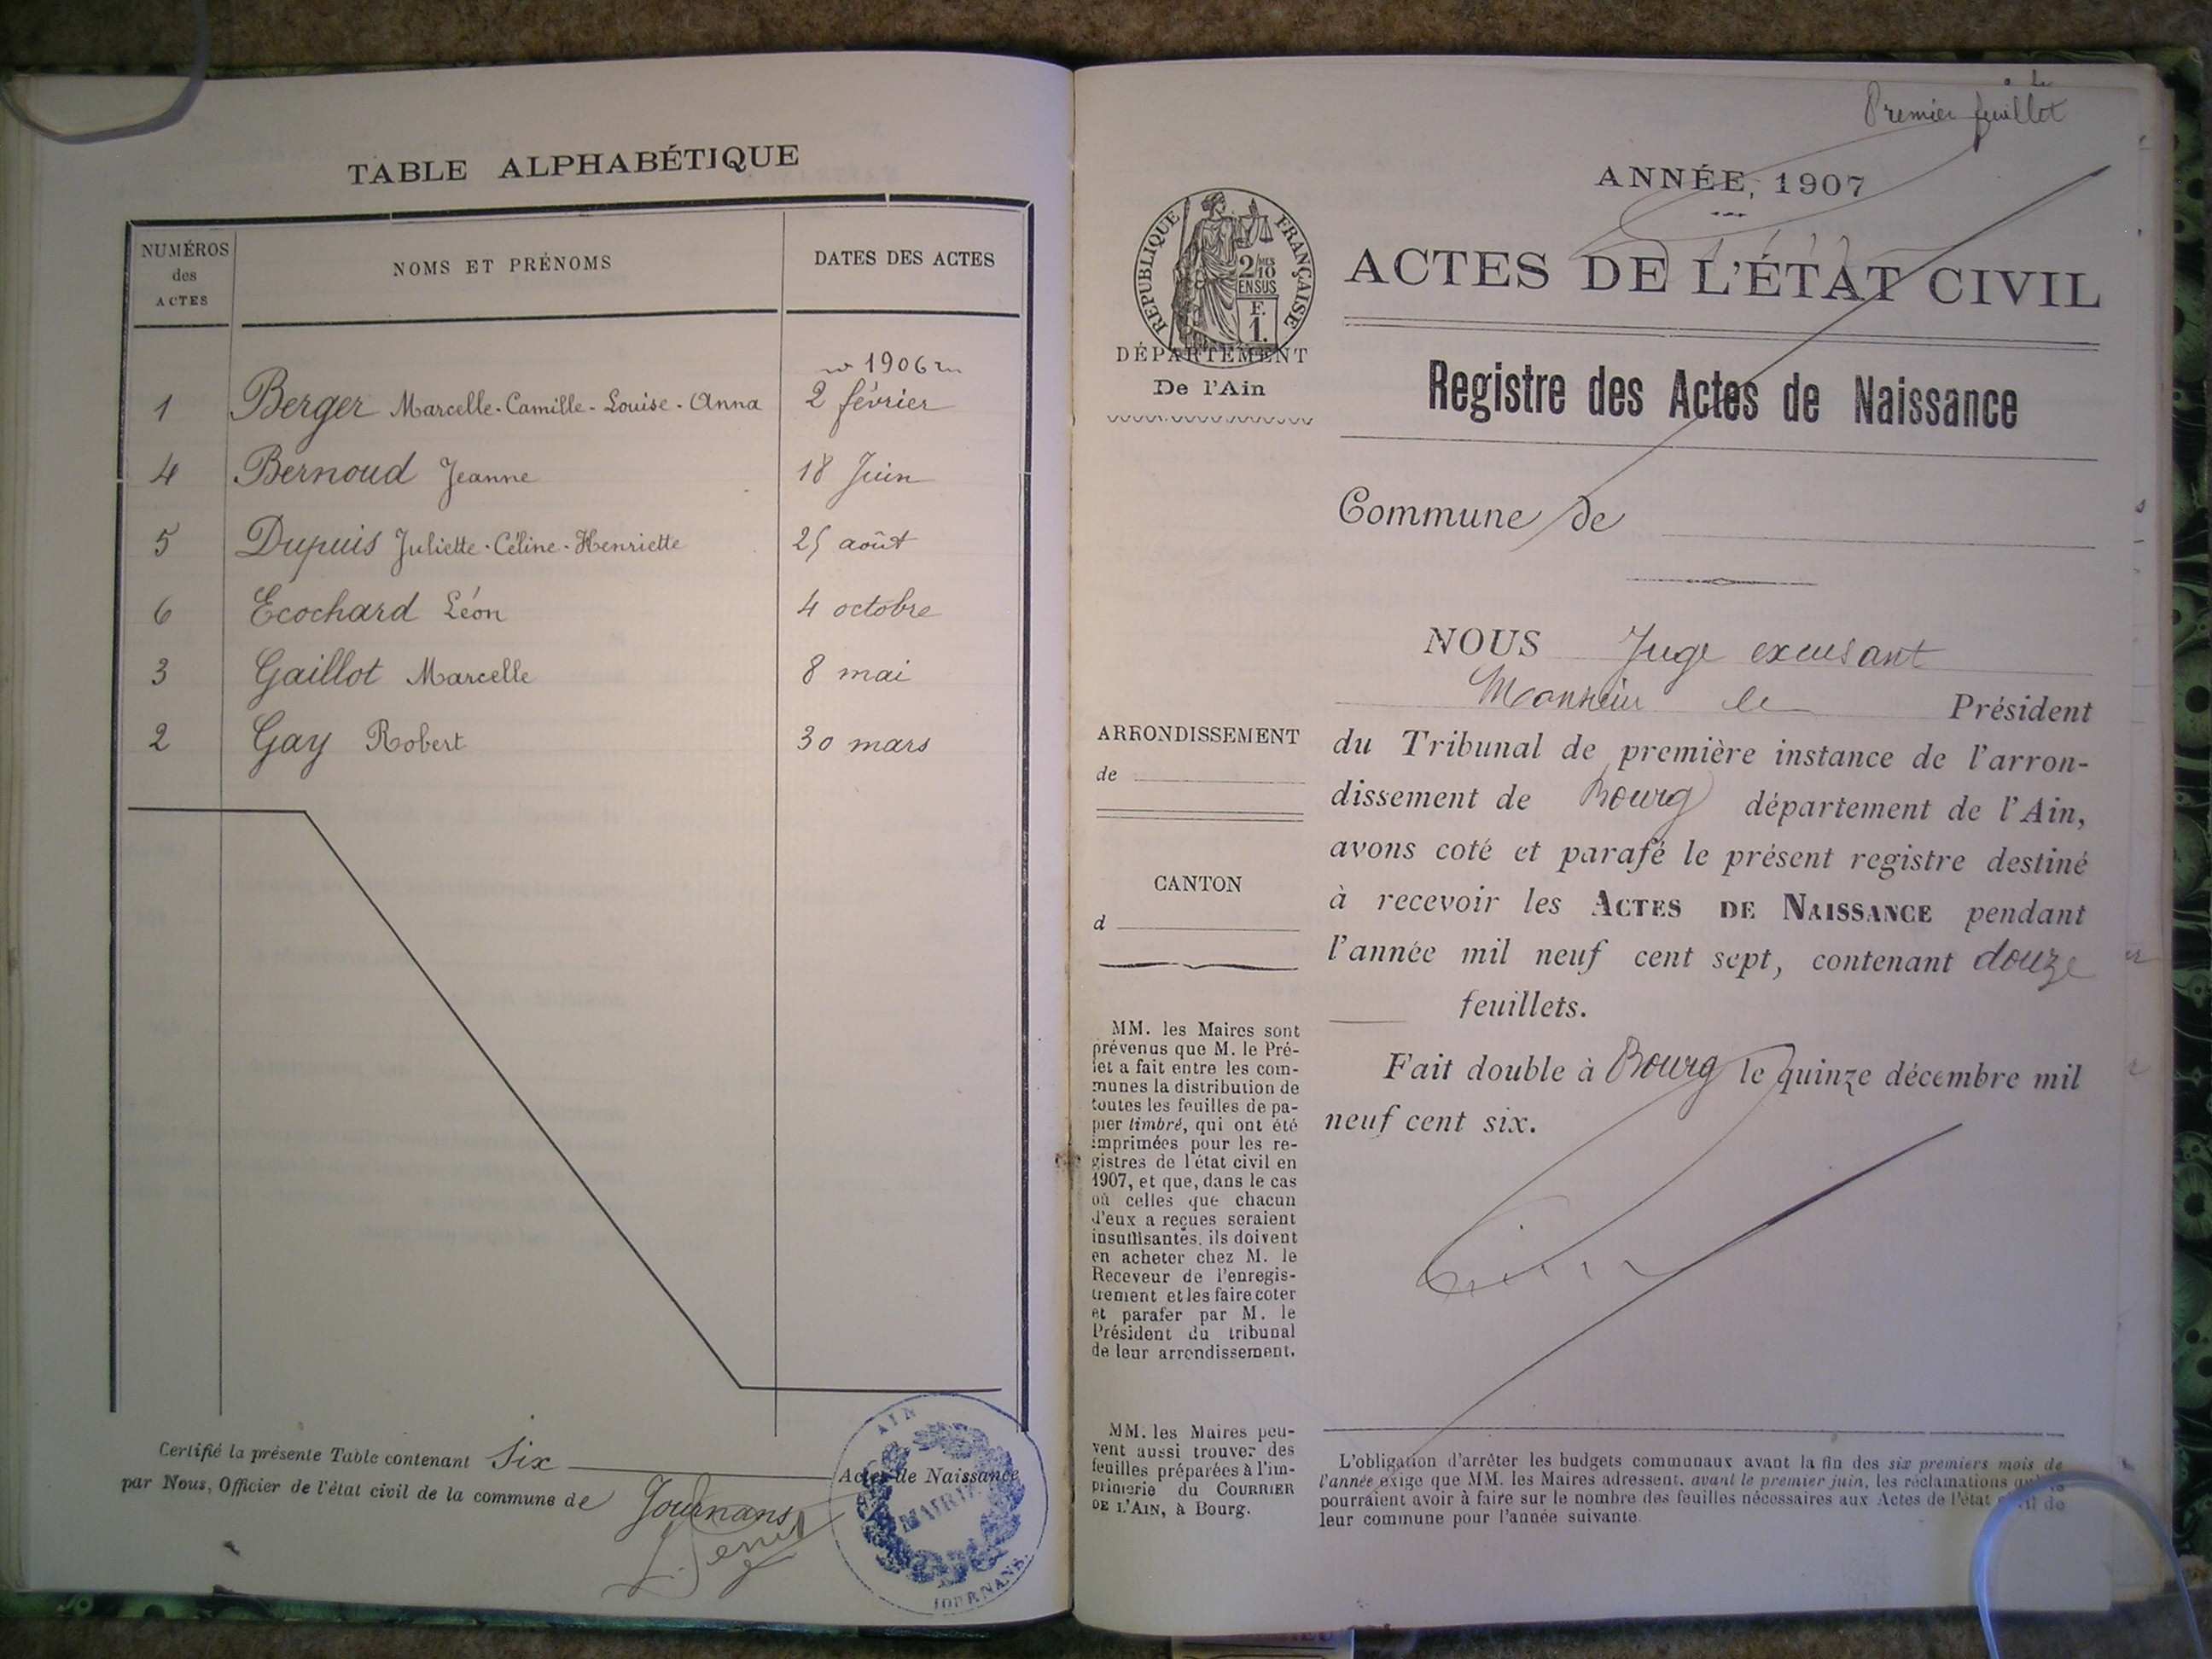 TABLE ALPHABÉTIQUE
NUMÉROS des ACTES
NOMS ET PRÉNOMS
DATES DES ACTES
1906
1 Berger Marcelle-Camille-Louise-Anna 2 février
4 Bernoud Jeanne 18 Juin
5 Dupuis Juliette-Céline-Henriette 25 août
6 Ecochard Léon 4 octobre
3 Gaillot Marcelle 8 mai
2 Gay Robert 30 mars
Certifié la présente Table contenant Six Actes de Naissance
par Nous, Officier de l'état civil de la commune de Journans
AIN
MAIRIE
JOURNANS
Premier feuillet
ANNÉE, 1907
RÉPUBLIQUE FRANÇAISE
2/10 MES
EN SUS
F.
1.
ACTES DE L'ÉTAT CIVIL
DÉPARTEMENT
De l'Ain
Registre des Actes de Naissance
Commune de
NOUS Juge excusant
Monsieur le Président
du Tribunal de première instance de l'arron-
dissement de Bourg département de l'Ain,
avons coté et parafé le présent registre destiné
à recevoir les ACTES DE NAISSANCE pendant
l'année mil neuf cent sept, contenant douze
feuillets.
Fait double à Bourg le quinze décembre mil
neuf cent six.
ARRONDISSEMENT
de
CANTON
d
MM. les Maires sont
prévenus que M. le Pré-
fet a fait entre les com-
munes la distribution de
toutes les feuilles de pa-
pier timbré, qui ont été
imprimées pour les re-
gistres de l'état civil en
1907, et que, dans le cas
où celles que chacun
d'eux a reçues seraient
insuffisantes, ils doivent
en acheter chez M. le
Receveur de l'enregis-
trement et les faire coter
et parafer par M. le
Président du tribunal
de leur arrondissement.
MM. les Maires peu-
vent aussi trouver des
feuilles préparées à l'im-
primerie du COURRIER
DE L'AIN, à Bourg.
L'obligation d'arrêter les budgets communaux avant la fin des six premiers mois de
l'année exige que MM. les Maires adressent, avant le premier juin, les réclamations qu'ils
pourraient avoir à faire sur le nombre des feuilles nécessaires aux Actes de l'état civil de
leur commune pour l'année suivante.